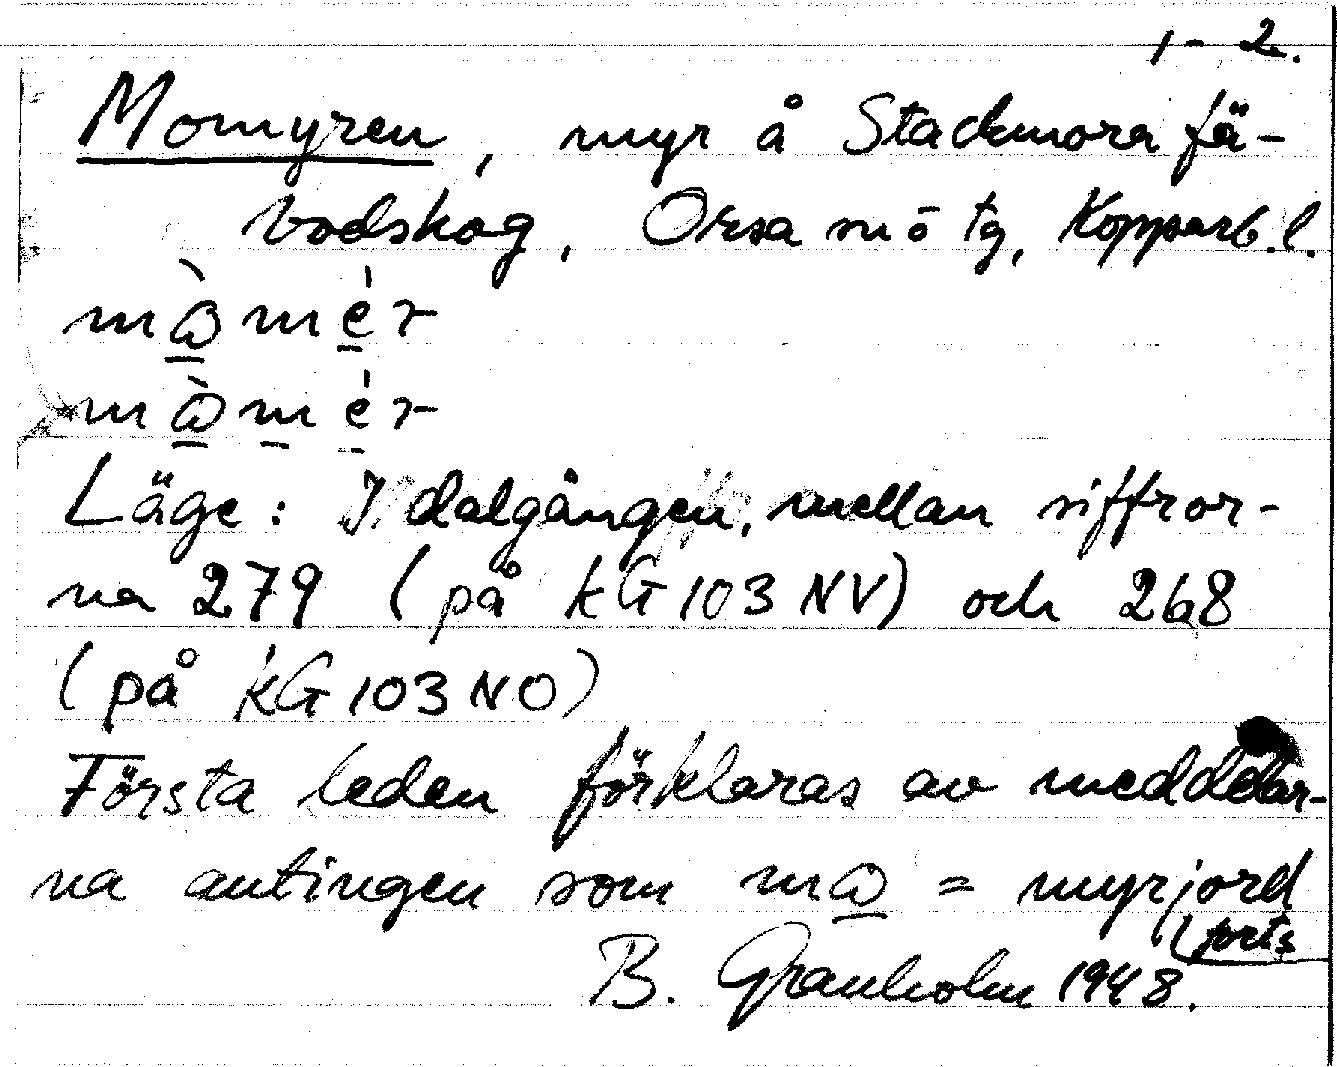 1-2.
Momyren, myr å Stackmora fä-
bodskog, Orsa sn ö tg, Kopparb. l.
mo̠̊̀mér
mo̠̊̀m̠ér
Läge: I dalgången, mellan siffror-
na 279 (på kG 103 NV) och 268
(på kG 103 NO)
Första leden förklaras av meddelar-
na antingen som = myrjord
(forts
B. Granholm 1948.